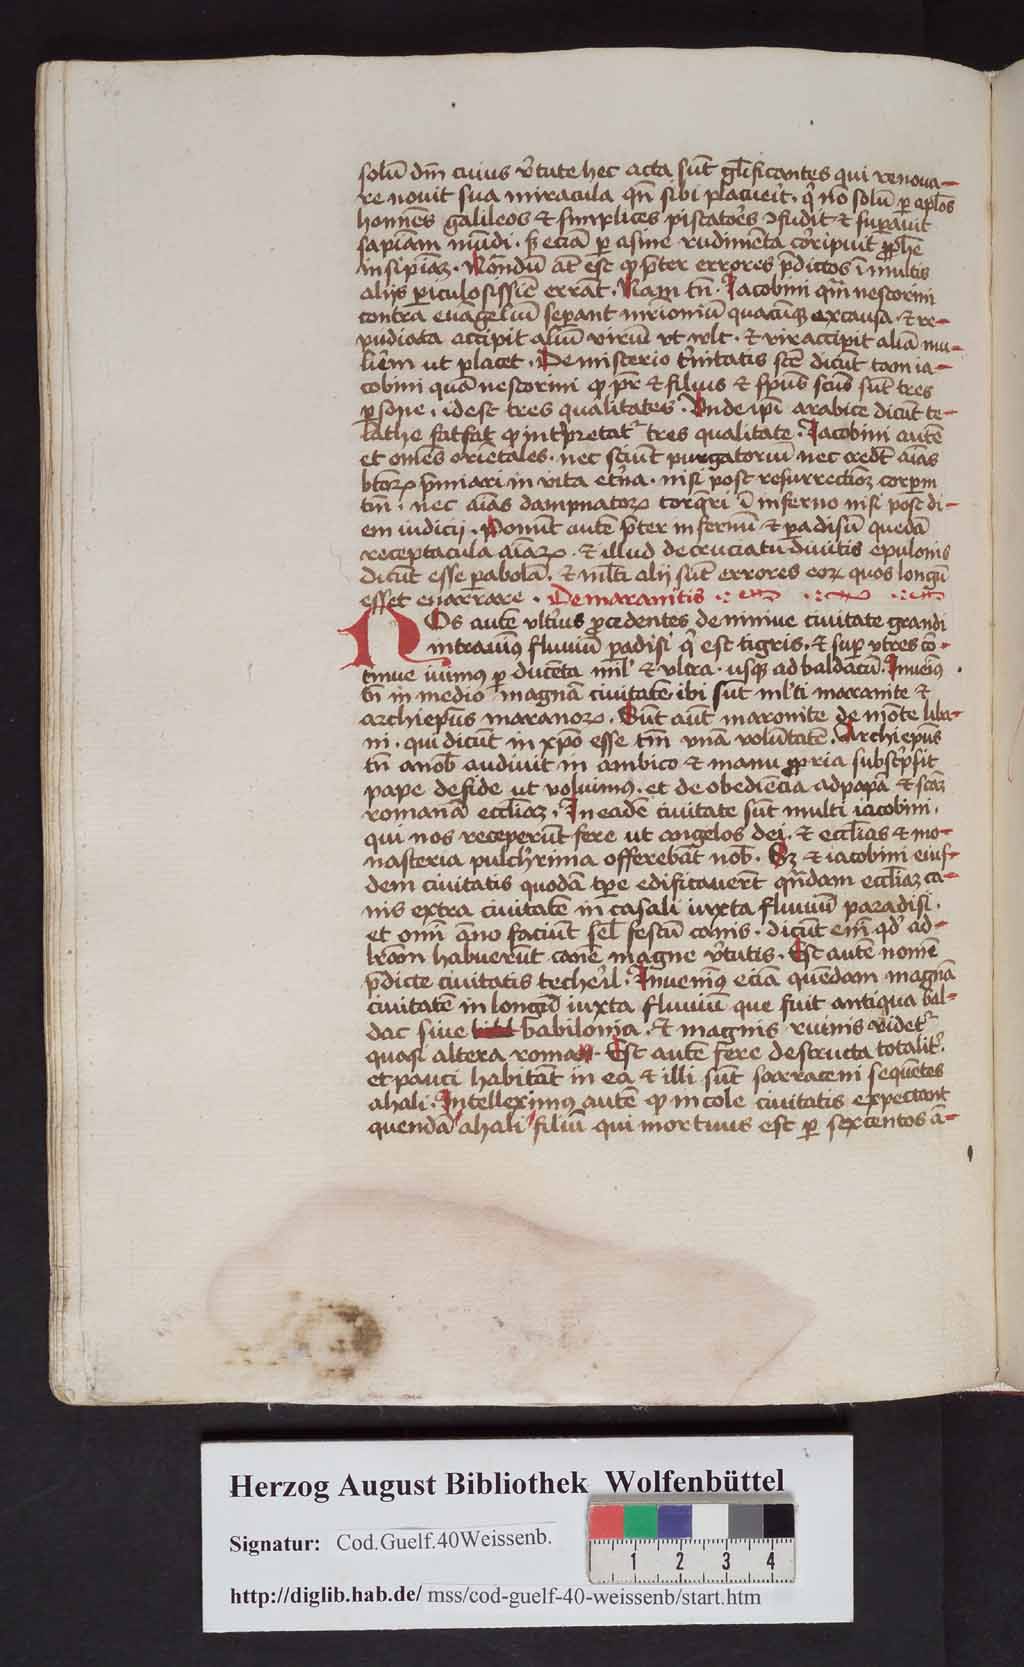 solū dm̄ cuius v̓tute hec acta sūt gl̄ificantes qui renoua-
re nouit sua miracula qn̄ sibi placueīt · q̓ nō solū ꝑ apl̄os
homnēs galileos & simplices piscatoēs ↄfudit & suꝑauit
sapiām mūdi · sꝫ eciā ꝑ asine rudimēta cōripuit ꝓphē
insipiāꝫ · Notandū at̄ est ꝙ p̄ter errores p̄dictos ī multis
aliis ꝑiculosissīe errāt · Nam tn̄ · Jacobini qm̄ nescorini
contra euāgeliū seꝑant m̄rioniū quacūqꝫ ex causa · & re-
pudiata accipit aliū virū vt vlt · & vir accipit aliā mu-
liēm ut placet · De misterio t̓nitatis scē dicūt tam ia-
cobini quā nescorini ꝙ pr̄ & filius & sp̄us scūs sūt tres
ꝑsone · idest tres qualitates · Unde ip̄i arabice dicūt te-
lathe fatfat ꝙ int̓pretat᷑ tres qualitate · Jacobini autē
et om̄es oriētales · nec sciūt purgatoriū nec credt̄ aīas
btōꝝ p̄miari in vita et̓na · nisi post resurrectiōꝫ corpm̄
tm̄ · nec aīas dampnatoꝝ torq̄ri ī inferno nisi post di-
em iudicij · Ponūt autē p̄ter infernū & ꝑadisū quedā
receptacula aīaꝝ · & illud de cruciatu diuitis epulonis
dicūt esse ꝑabolā · & ml̄ti alij sūt errores eoꝝ quos longū
esset enarrare · De maranitis
Nos autē vlt̓ius ꝓcedentes de niniue ciuitate grandi
intrauimꝰ fluuiū ꝑadisi q̓ est tigris · & suꝑ vtres cō-
tinue iuimꝰ ꝑ ducēta mīl & vltra · usqꝫ ad baldacū · Inueīmꝰ
tn̄ in medio magnā ciuitatē ibi sūt ml̓ti maranite &
archiepūs maranoꝝ · Sūt aūt maronite de mōte liba-
ni · qui dicūt in xp̄o esse tm̄ vnā volūtatē · Archiepūs
tn̄ a nob̄ audiuit in ambico & manu ꝓpria subscp̓sit
pape de fide ut voluimꝰ · et de obediēcia ad papā & scāꝫ
romanā eccl̄iaꝫ · In eadē ciuitate sūt multi iacobini ·
qui nos receperūt fere ut angelos dei · & eccl̄ias & mo-
nasteria pulch̓rima offerebāt nob̄ · Sꝫ & iacobini eius-
dem ciuitatis quodā tp̄e edificauer̄t qn̄dam eccl̄iaꝫ ca-
nis extra ciuitatē in casali iuxta fluuiū paradisi ·
et omī āno faciūt sel̄ festū canis · dicūt enī qd̓ ad-
hraam habuerūt canē magne v̓tutis · Est autē nomē
p̄dicte ciuitatis techeil · Inuenimꝰ eciā quendam magnā
ciuitatē in longū iuxta fluuiū que fuit antiqua bal-
dac siue babilonia · & magnis ruinis videt᷑
quasi altera roma · Est autē fere destructa totalit̓
et pauci habitāt in ea & illi sūt sarraceni sequētes
ahali · Intelleximꝰ autē ꝙ incole ciuitatis expectant
quendā ahali filiū qui mortuus est ꝑ sexcentos ā-
Herzog August Bibliothek Wolfenbüttel
Signatur: Cod.Guelf.40Weissenb.
1 2 3 4
http://diglib.hab.de/ mss/cod-guelf-40-weissenb/start.htm